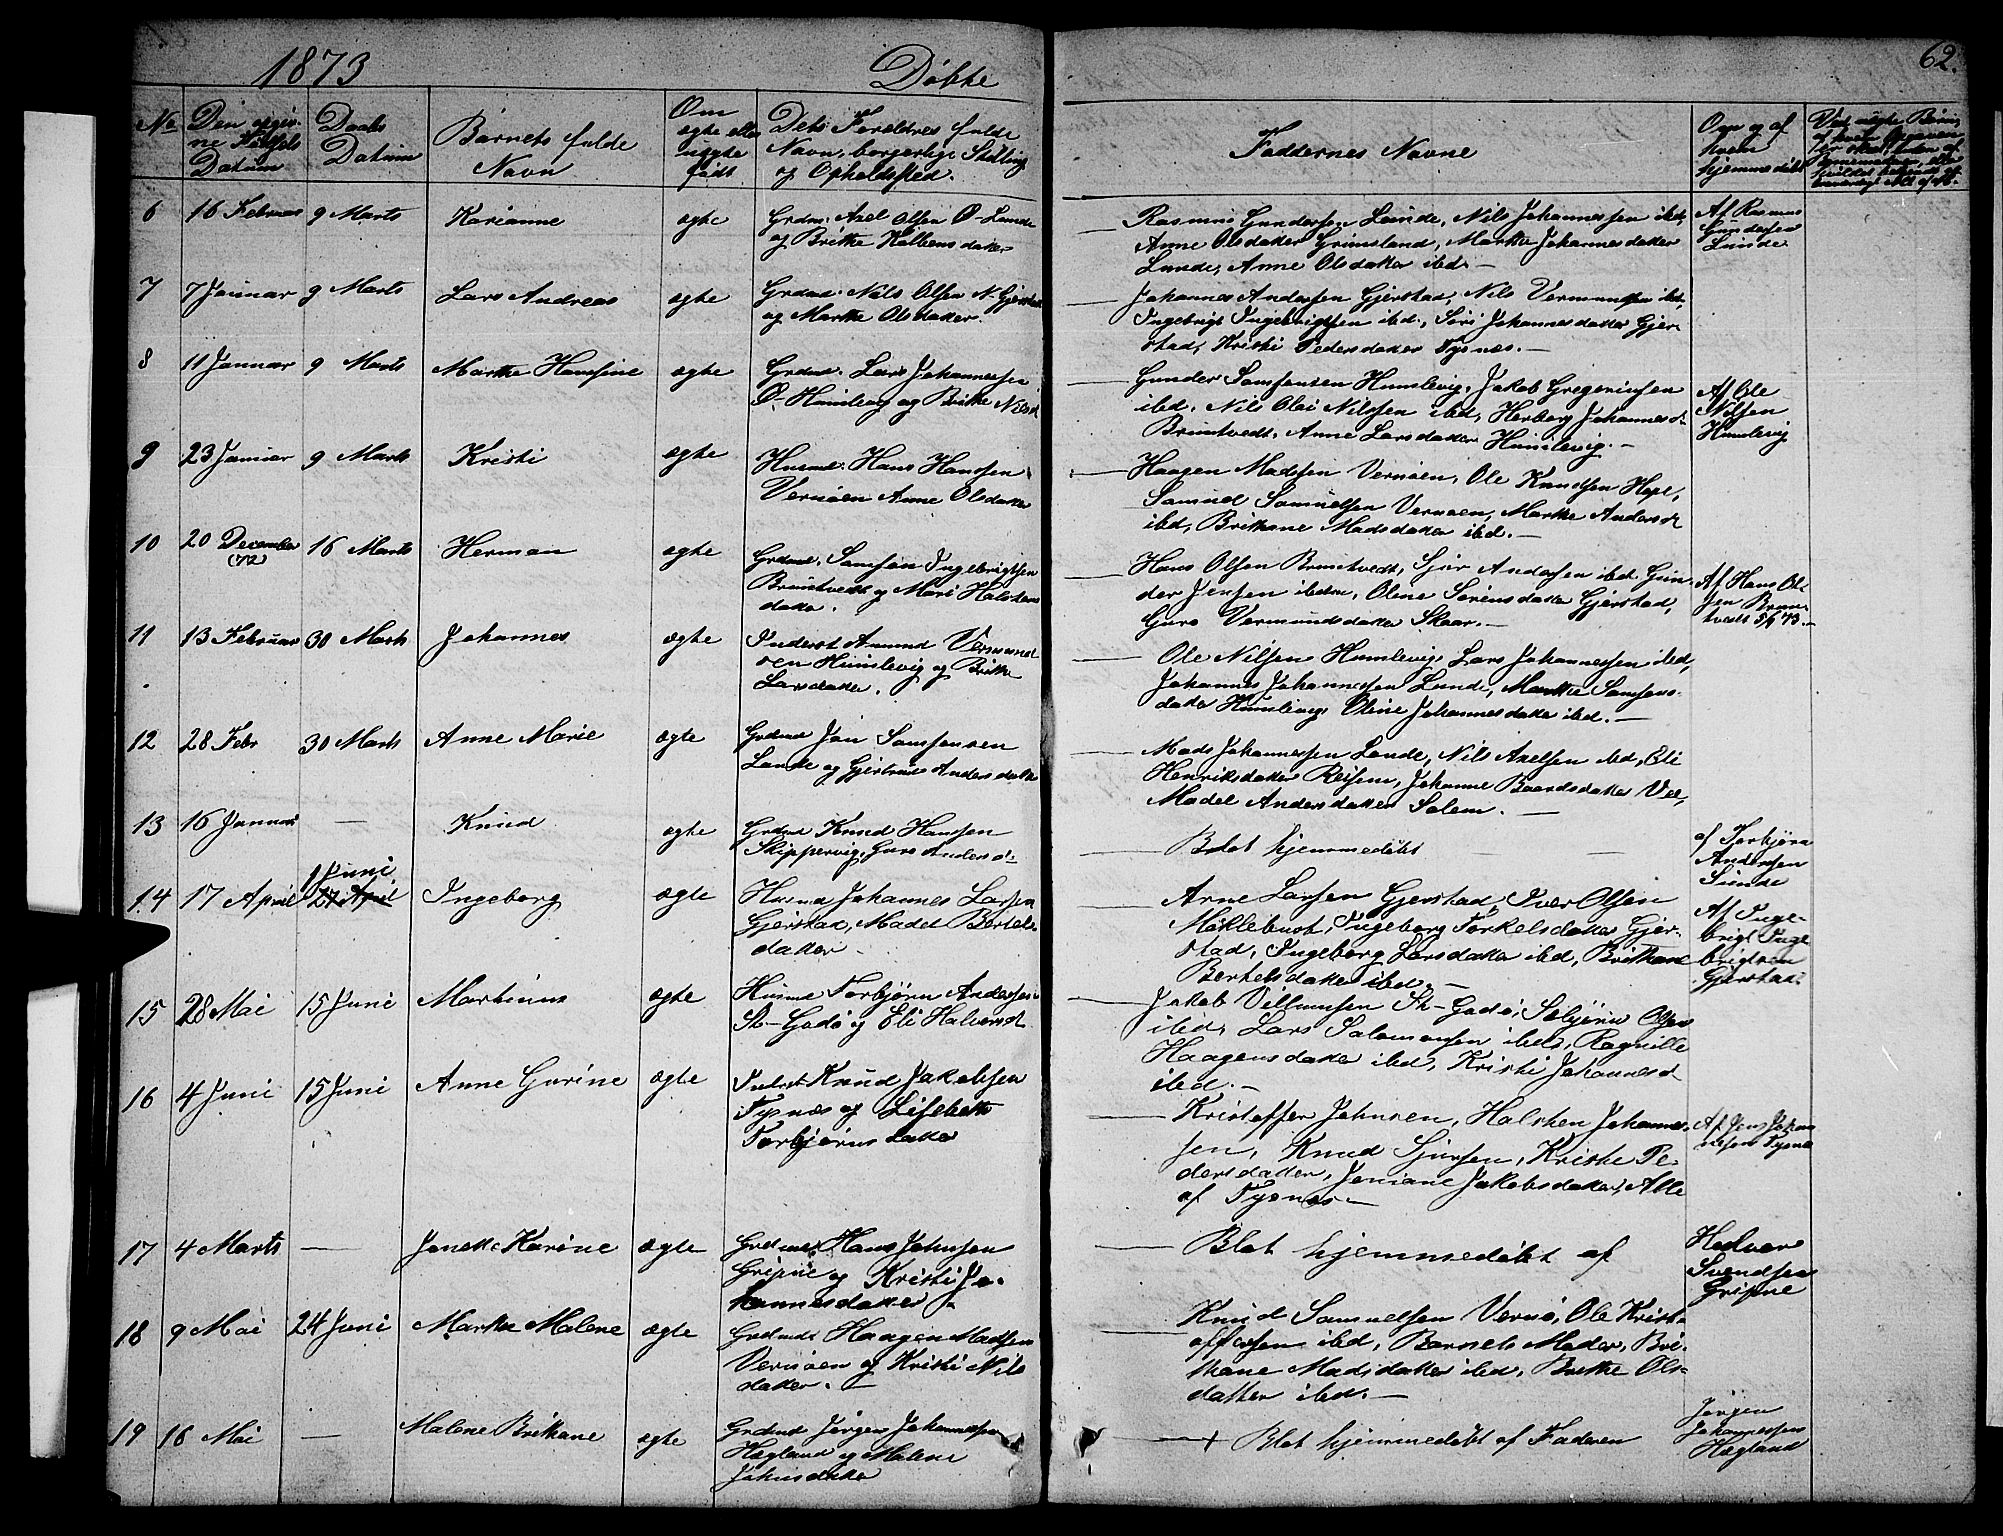 1873
Døbte
62.
No
Den opgiv-
ne Fødsels
Datum
Daabs
Datum
Barnets fulde
Navn
Om
ægte eller
uægte
født
Dets Foreldres fulde
Navn, borgerlige Stilling
og Opholdssted.
Faddernes Navne
Om og af
hvem
hjemmedøbt
6 16 Februar 9 Marts Karianne ægte
Grdmd. Axel Olsen Ø-Lunde
og Brithe
Rasmus Gundersen Lunde, Nils Johannessen ibd,
Anne Olsdatter Grimsland, Marthe Johannesdatter
Lunde, Anne Olsdatter ibd. —
Af Rasmus
Gundersen
Lunde
7 7 Januar 9 Marts Lars Andreas ægte
Grdmd. Nils Olsen N-Gjerstad
og Marthe Olsdatter.
Johannes Andersen Gjerstad, Nils Vermundsen ibd,
Ingebrigt Ingebrigtsen ibd., Siri Johannesdatter Gjer-
stad, Kristi Pedersdatter Tysnes. —
8 11 Januar 9 Marts Marthe Hansine ægte
Grdmd. Lars Johannessen
Ø-Humlevig og Brithe Nilsd
Gunder Samsonsen Humlevig, Jakob Gregoriussen
ibd, Nils Olai Nilssen ibd, Herborg Johannesd-
Bruntvedt, Anne Larsdatter Humlevig. —
Af Ole
Nilsen
Humlevig
9 23 Januar 9 Marts Kristi ægte
Husmd. Hans Hanssen
Vernøen Anne Olsdatter
Haagen Madssen Vernøen, Ole Knudsen Hope,
Samuel Samuelsen Vernøen, Marthe Andersd
ibd, Brithane Madsdatter ibd. —
10 20 December (72) 16 Marts Herman ægte
Grdmd. Samson Ingebrigtsen
Bruntvedt og Mari Halstens
datter.
Hans Olsen Bruntvedt, Sjur Andersen ibd. Gun-
der Jensen ibdm, Oline Sørensdatter Gjerstad,
Guro Vermundsdatter Skaar. —
Af Hans Ol-
sen Brun
tvedt 5/1 73. —
11 13 Februar 30 Marts Johannes ægte
Inderst Amund Vermund
sen Humlevig og Brithe
Larsdatter.
Ole Nilsen Humlevig, Lars Johannessen ibd,
Johannes Johannessen Lunde, Marthe Samsons-
datter Humlevig, Oline Johannesdatter ibd. —
12 28 Febr 30 Marts Anne Marie ægte
Grdmd Jon Samsonsen
Lande og Gjertrud Andersdatter
Mads Johannessen Lande, Nils Axelsen ibd, Eli
Henriksdatter Reisem, Johanne Baardsdatter Vee,
Madel Andersdatter Solem. —
13 16 Januar — Knud ægte
Grdmd Knud Hanssen
Skippervig, Guro Andersd:
Blot hjemmedøbt — —
af Torbjørn
Andersen
Sunde
14 17 April 1 Juni 27 April Ingeborg ægte
Husmd Johannes Larsen
Gjerstad, Madel Bertels-
datter —
Arne Larsen Gjerstad, Iver Olsen
Møklebust, Ingeborg Torkelsdatter Gjer-
stad, Ingeborg Larsdatter ibd, Brithane
Bertelsdatter ibd. —
Af Inge-
brigt Inge
brigtsen
Gjerstad:
15 28 Mai 15 Juni Marthinus ægte
Husmd Torbjørn Andersen
St-Godø og Eli Halvorsd
Jakob Villumsen St-Godø, Sebjørn Olsen
ibd, Lars Salomonsen ibd, Ragnille
Haagensdatter ibd, Kristi Johannesd
ibd. —
16 4 Juni 15 Juni Anne Gurine ægte
Inderst Knud Jakobsen
Tysnes og Lisebeth
Torbjørnsdatter
Kristoffer Johnsen, Halsten Johannes-
sen, Knud Sjursen, Kristi Pe-
dersdatter, Jensiane Jakobsdatter, Alle
af Tysnes —
Af Jens Johan
nessen Tysnes
17 4 Marts — Jensk Karine ægte
Grdmd Hans Johnsen
Gripne og Kristi Jo-
hannesdatter —
Blot hjemmedøbt af
Halvor
Svendsen
Gripne
18 9 Mai 24 Juni Marthe Malene ægte
Grdmd Haagen Madsen
Vernøen og Kristi Nils
datter. —
Knud Samuelsen Vernø, Ole Krist-
offersen ibd, Barnets Moder, Bri-
thane Madsdatter ibd, Brithe Ols-
datter ibd. —
19 16 Mai — Malene Brithane ægte
Grdmd Jørgen Johannessen
Høgland og Malene
Johnsdatter
Blot hjemmedøbt af Faderen
Jørgen
Johannessen
Høgland